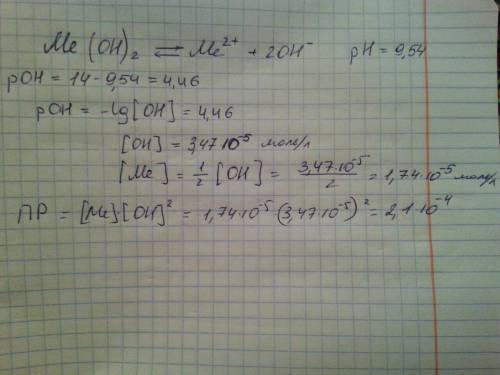 Me(OH)₂ ⇄ Me²⁺ + 2OH⁻ pH = 9,54
pOH = 14 - 9,54 = 4,46
pOH = -lg[OH] = 4,46
[OH] = 3,47·10⁻⁵ моль/л
[Me] = 1/2 [OH] = 3,47·10⁻⁵/2 = 1,74·10⁻⁵ моль/л
ПР = [Me][OH]² = 1,74·10⁻⁵ (3,47·10⁻⁵)² = 2,1·10⁻⁴